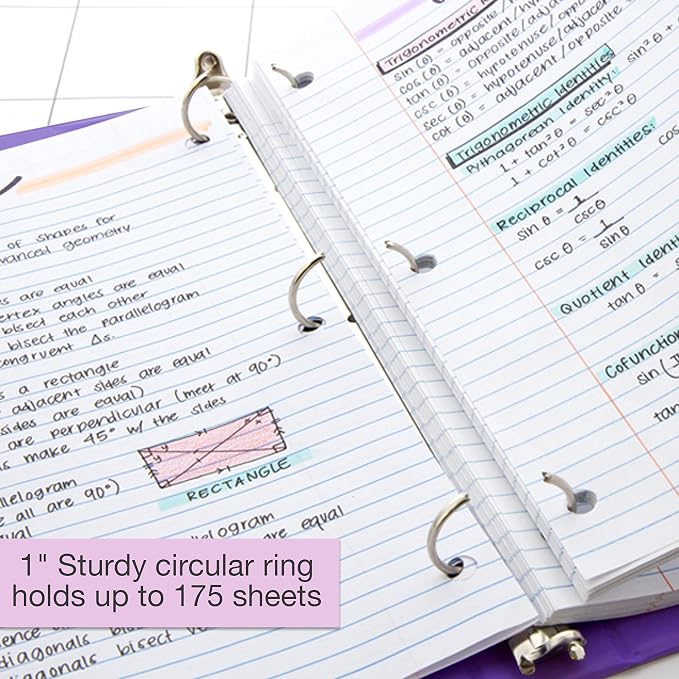 of shapes for
advanced geometry
are equal
vertex angles are equal
bisect each other
bisect the parallelogram
congruent Δs.
a rectangle
adjacent sides are equal
sides are equal)
are perpendicular (meet at 90°)
make 45° w/ the sides
RECTANGLE
parallelogram
all are 90°)
equal
parallelogram
are equal
diagonals
diagonals bisect
1" Sturdy circular ring
holds up to 175 sheets
Trigonometric
sin (θ) = opposite/
cos (θ) = adjacent/hy
tan (θ) = opposite/adjacent
csc (θ) = hypotenuse/oppo
sec (θ) = hypotenuse/adjacent
cot (θ) = adjacent/opposite
Trigonometric Identities
Pythagorean Identity:
sin² θ +
1 + tan² θ = sec² θ
1 + cot² θ = csc² θ
Reciprocal Identities:
sin θ = 1/cscθ
cos
csc θ = 1/sinθ
Quotient Identi
tan θ =
Cofunction
sin (
tan